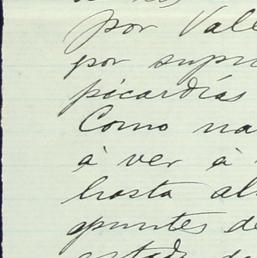 por Val
por supu
picardías
Como na
á ver á
hasta al
apuntes de